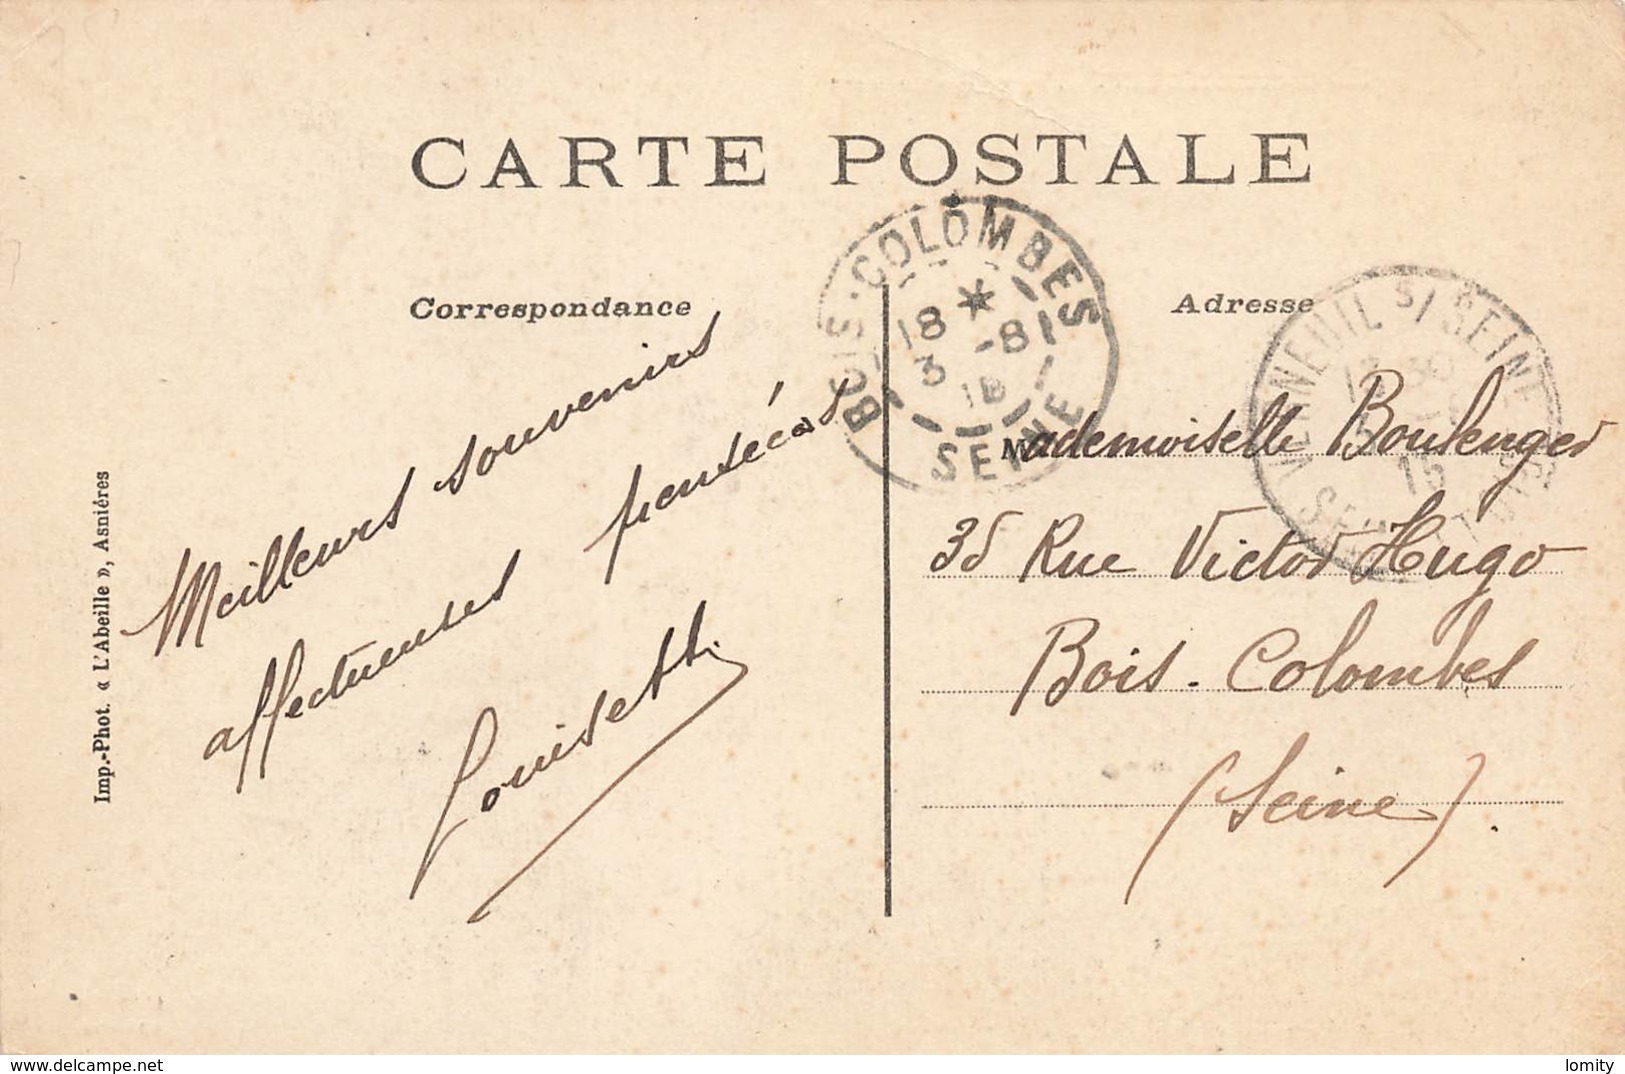 CARTE POSTALE
Correspondance
Adresse
BOIS-COLOMBES
18 *
3 -8
15
SEINE
VERNEUIL S/ SEINE
15
Meilleurs souvenirs
affectueuses pensées
Louisette
Mademoiselle Boulenger
35 Rue Victor Hugo
Bois-Colombes
(Seine).
Imp.-Phot. « L'Abeille », Asnières
www.delcampe.net
lomity